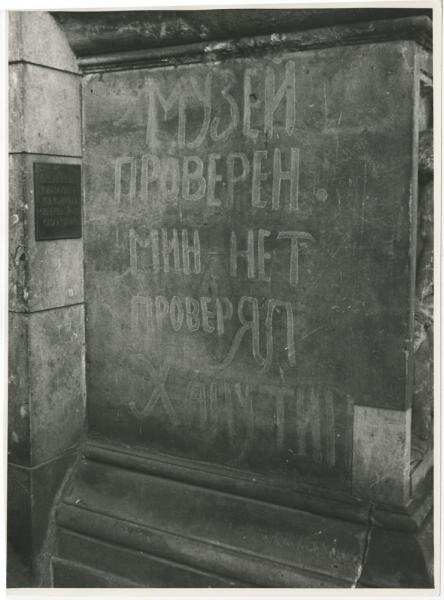 МУЗЕЙ
ПРОВЕРЕН.
МИН НЕТ
ПРОВЕРЯЛ
ХАНУТИН